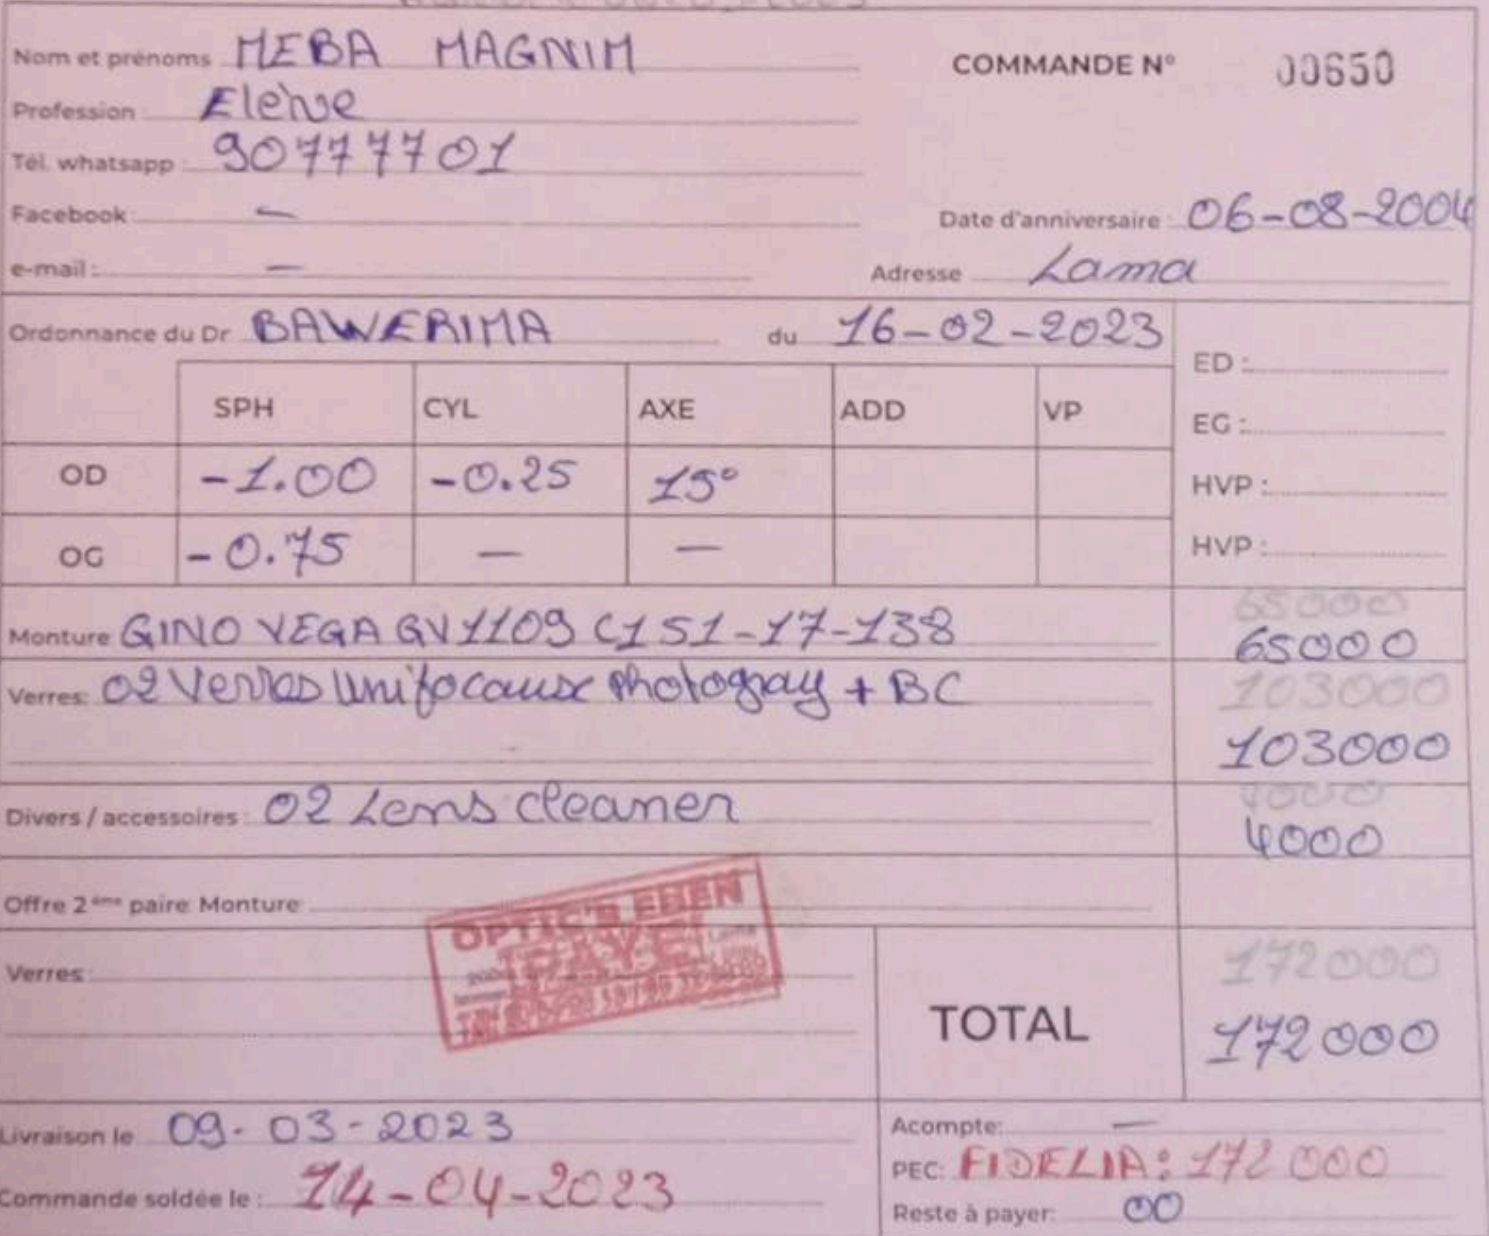 Nom et prénoms MEBA MAGNIM
COMMANDE N° 00650
Profession Elève
Tél. whatsapp : 90777701
Facebook : —
Date d'anniversaire : 06-08-2004
e-mail : —
Adresse Lama
Ordonnance du Dr BAWERIMA du 16-02-2023
ED :
SPH CYL AXE ADD VP
EG :
OD -1.00 -0.25 15°
HVP :
OG -0.75 — —
HVP :
65000
Monture GINO VEGA GV1109 C1 51-17-138 65000
Verres: 02 Verres Unifocaux Photogray + BC 103000
103000
4000
Divers / accessoires : 02 Lens cleaner 4000
Offre 2ème paire Monture
OPTIC'S EBEN
PAYE
Verres :
172000
TOTAL 172000
Livraison le 09-03-2023
Acompte: —
PEC: FIDELIA: 172 000
Commande soldée le : 14-04-2023
Reste à payer: 00